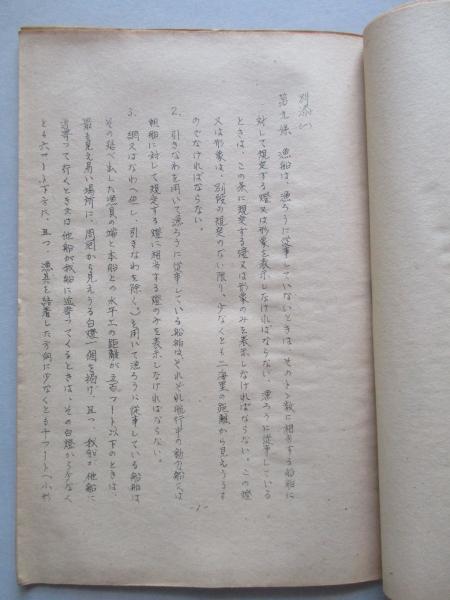 別添(一)
第九條 漁船は、漁ろうに従事していないときは、そのトン数に相当する船舶に
対して規定する燈又は形象を表示しなければならない。漁ろうに従事している
ときは、この條に規定する燈又は形象のみを表示しなければならない。この燈
又は形象は、別段の規定のない限り、少なくとも二海里の距離から見えうるも
のでなければならない。
2. 引きなわを用いて漁ろうに従事している船舶は、それぞれ航行中の動力船又は
帆船に対して規定する燈に相当する燈のみを表示しなければならない。
3. 網又はなわ(但し、引きなわを除く。)を用いて漁ろうに従事している船舶は、
その延べ出した漁具の端と本船との水平上の距離が五百フート以下のときは、
最も見え易い場所に、周囲から見えうる白燈一個を掲げ、且つ、我船が他船に
近寄つて行くとき又は他船が我船に近寄つてくるときは、その白燈から少なく
とも六フート下方に、且つ、漁具を結着した方向に少なくとも十フート(小形
-1-